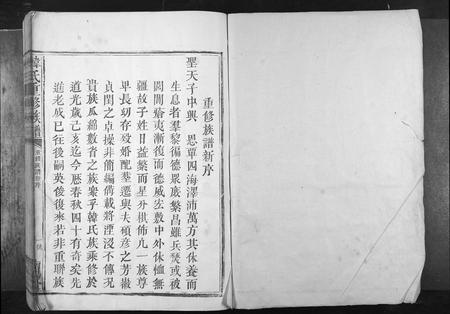 重修族譜新序
聖天子中興 恩單四海澤沛萬方其休養而
生息者羣黎徧德眾庶繁昌雖兵燹或被
閭閻瘡夷漸復而德威宏敷中外休恤無
疆故子姓日益繁而星分棋佈凡一族尊
卑長幼存歿婚配葬遷與夫碩彥之芳徽
貞閨之卓操非簡編備載將湮沒不傳况
貴族瓜綿數百之族案乎韓氏族乘修於
道光歲己亥迄今歷春秋四十有奇矣先
進老成已往後嗣英俊復來若非重聯族
韓氏重修族譜
重修族譜新序